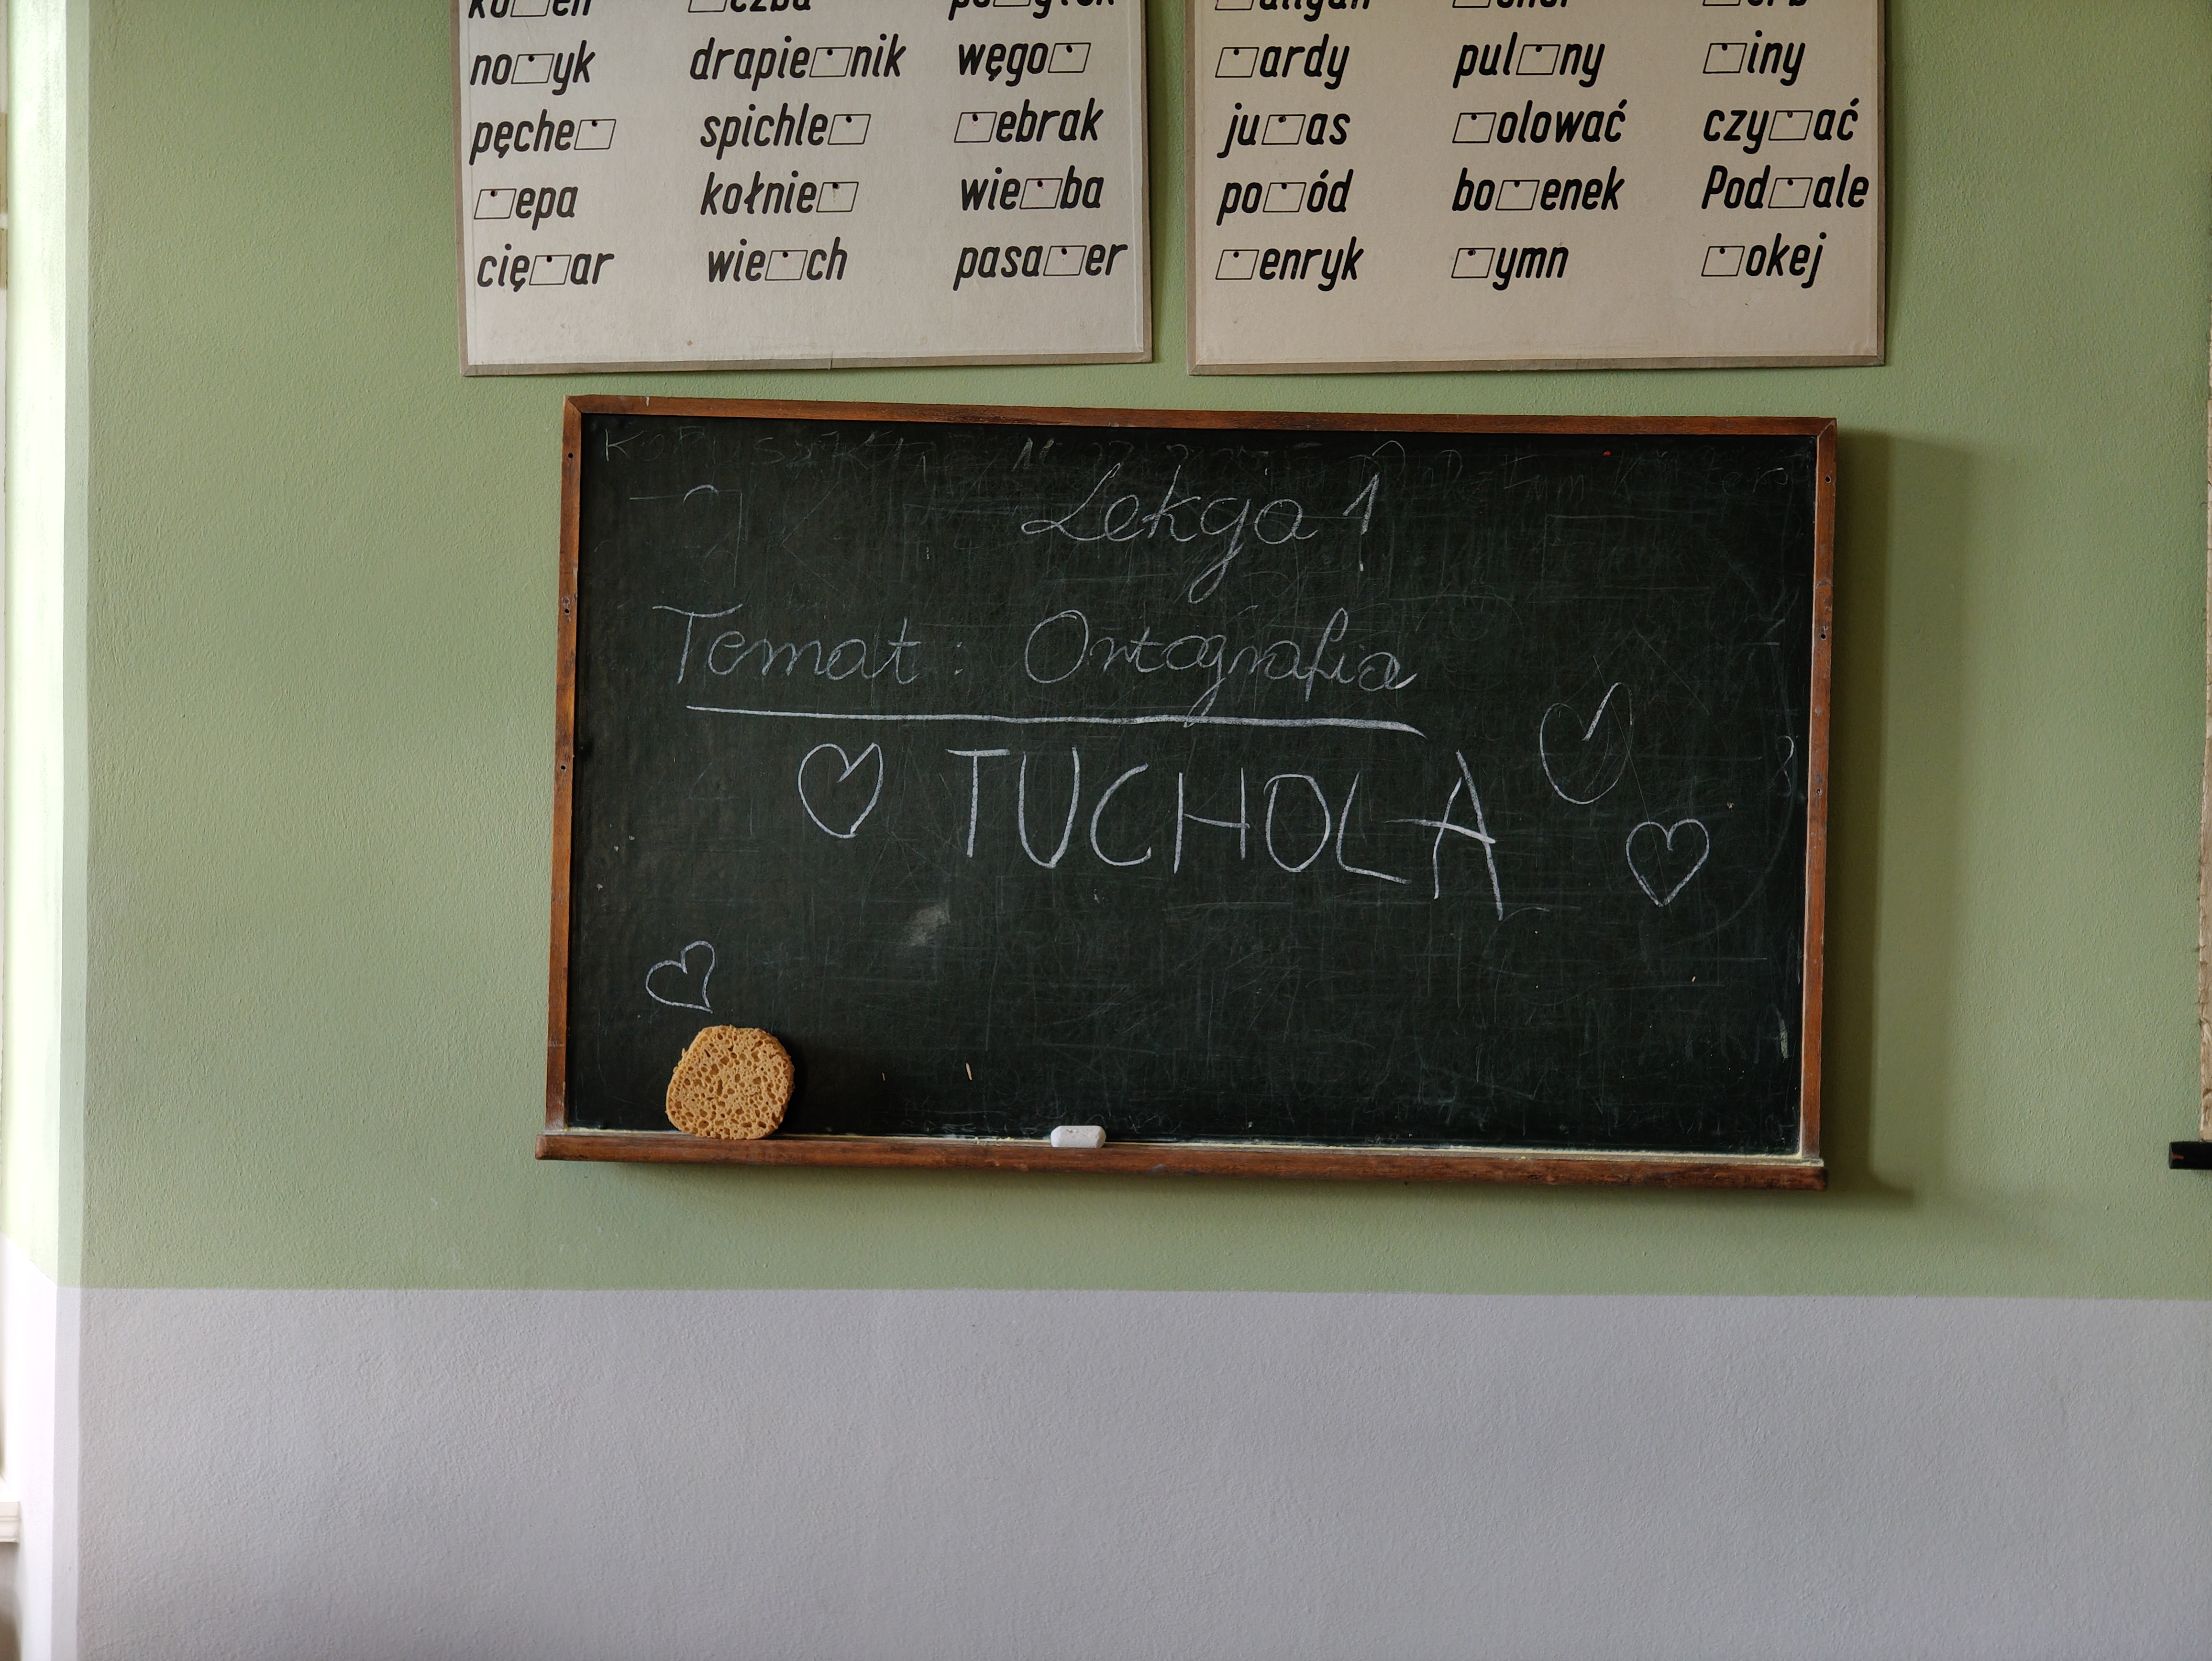 no□yk drapie□nik węgo□
pęche□ spichle□ □ebrak
□epa kołnie□ wie□ba
cię□ar wie□ch pasa□er
□ardy pul□ny □iny
ju□as □olować czy□ać
po□ód bo□enek Pod□ale
□enryk □ymn □okej
Lekcja 1
Temat: Ortografia
TUCHOLA